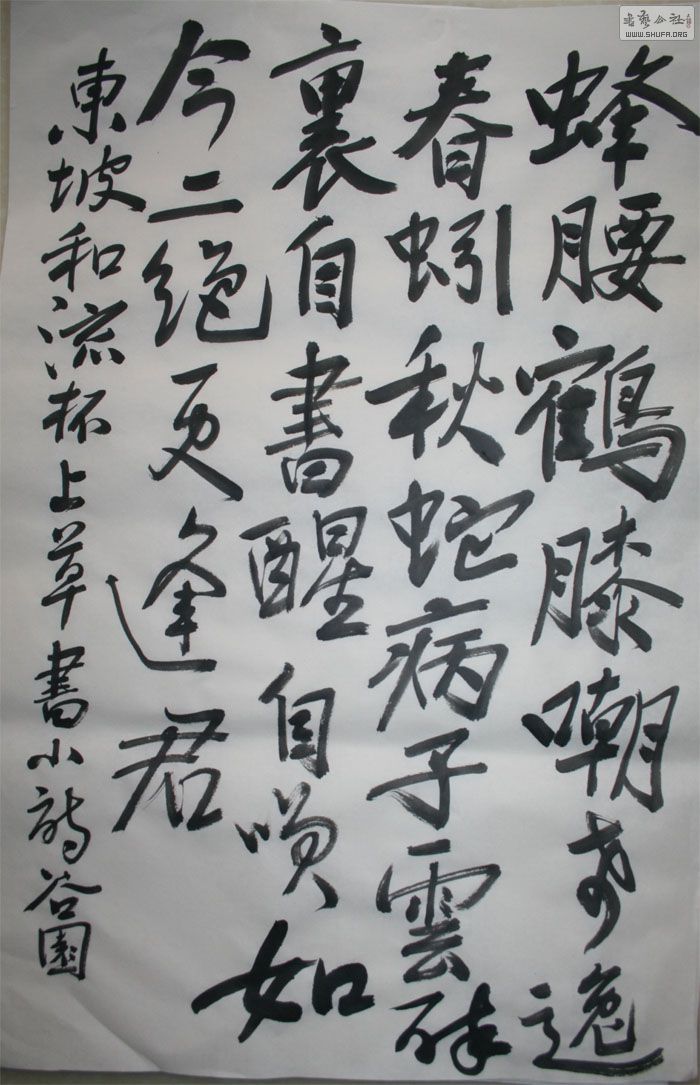 蜂腰鶴膝嘲希逸
春蚓秋蛇病子雲醉
裏自書醒自咲如
今二絶更逢君
東坡和流杯上草書小詩谷園
書藝公社
WWW.SHUFA.ORG